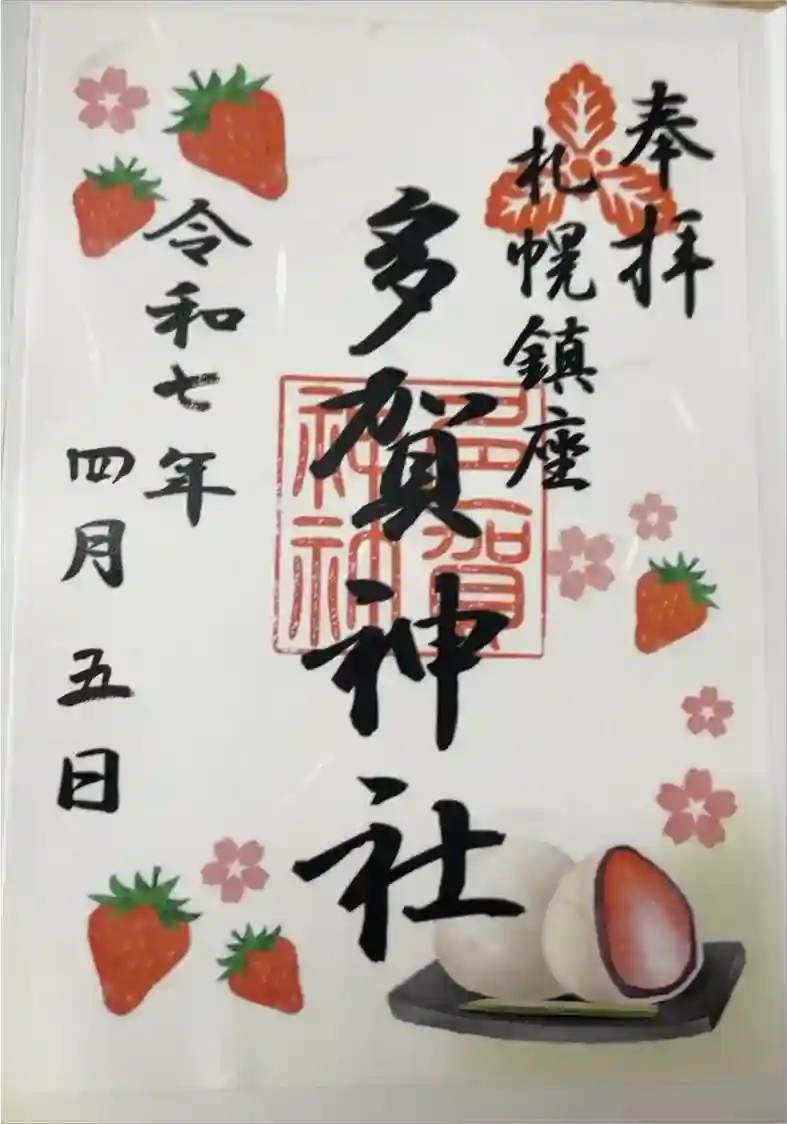 奉拝
札幌鎮座
多賀神社
多賀神社
令和七年
四月五日